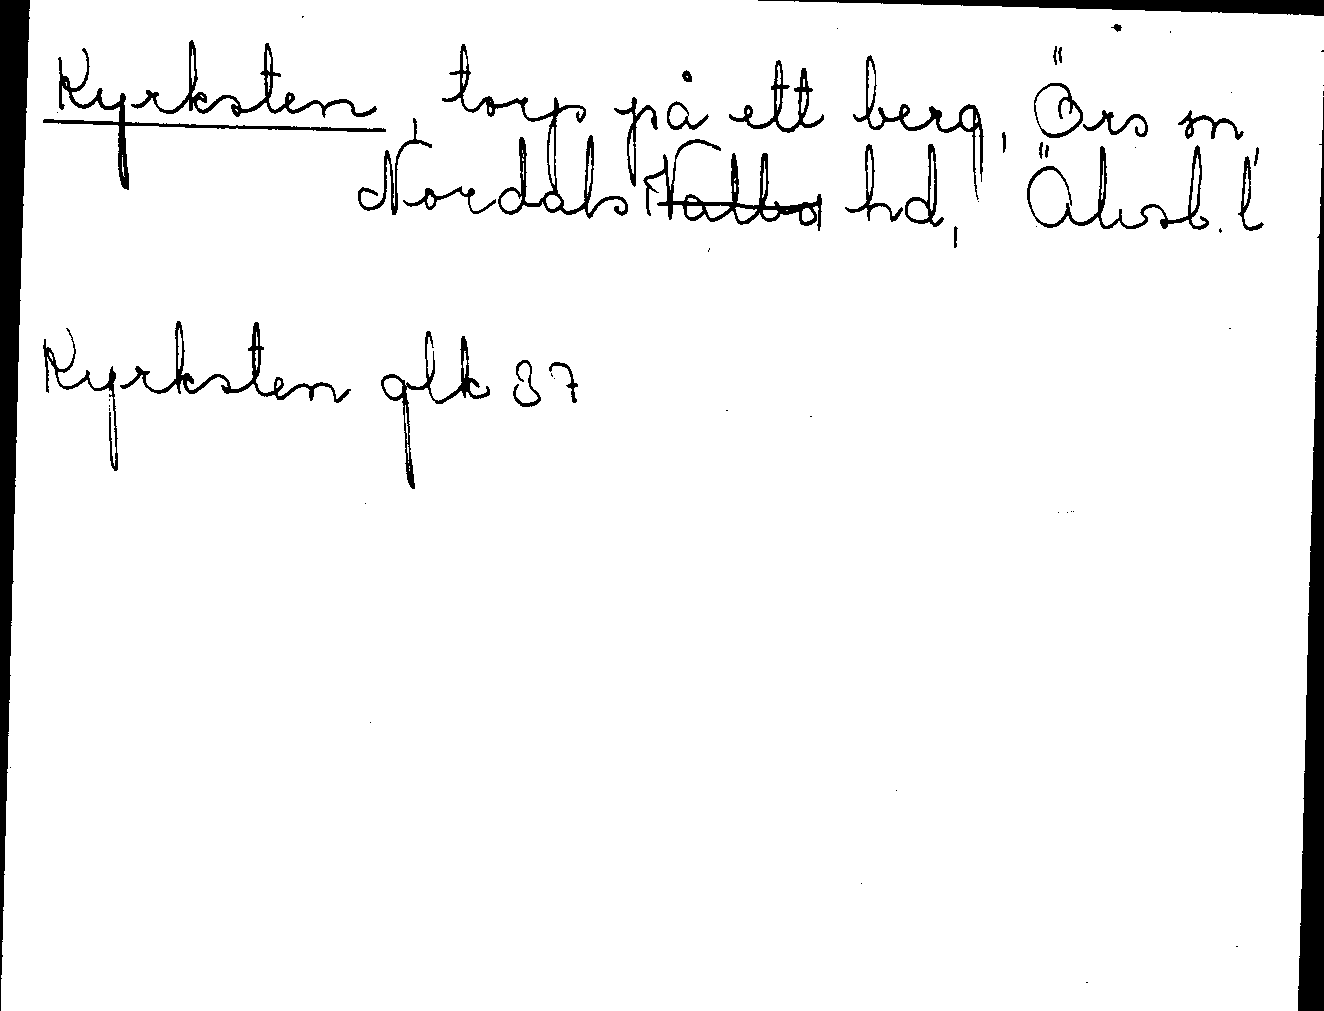 Kyrksten, torp på ett berg, Örs sn,
Nordals Valbo hd, Älvsb. l
Kyrksten glk 37